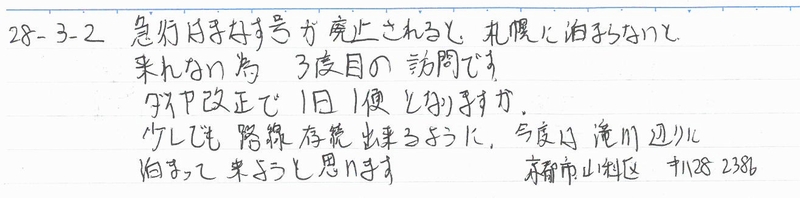 28-3-2 急行はまなす号が廃止されると、札幌に泊まらないと
来れない為 3度目の訪問です。
ダイヤ改正で1日1便となりますが、
少しでも路線存続出来るように、今度は滝川辺りに
泊まって来ようと思います
京都市山科区 キハ28 2386